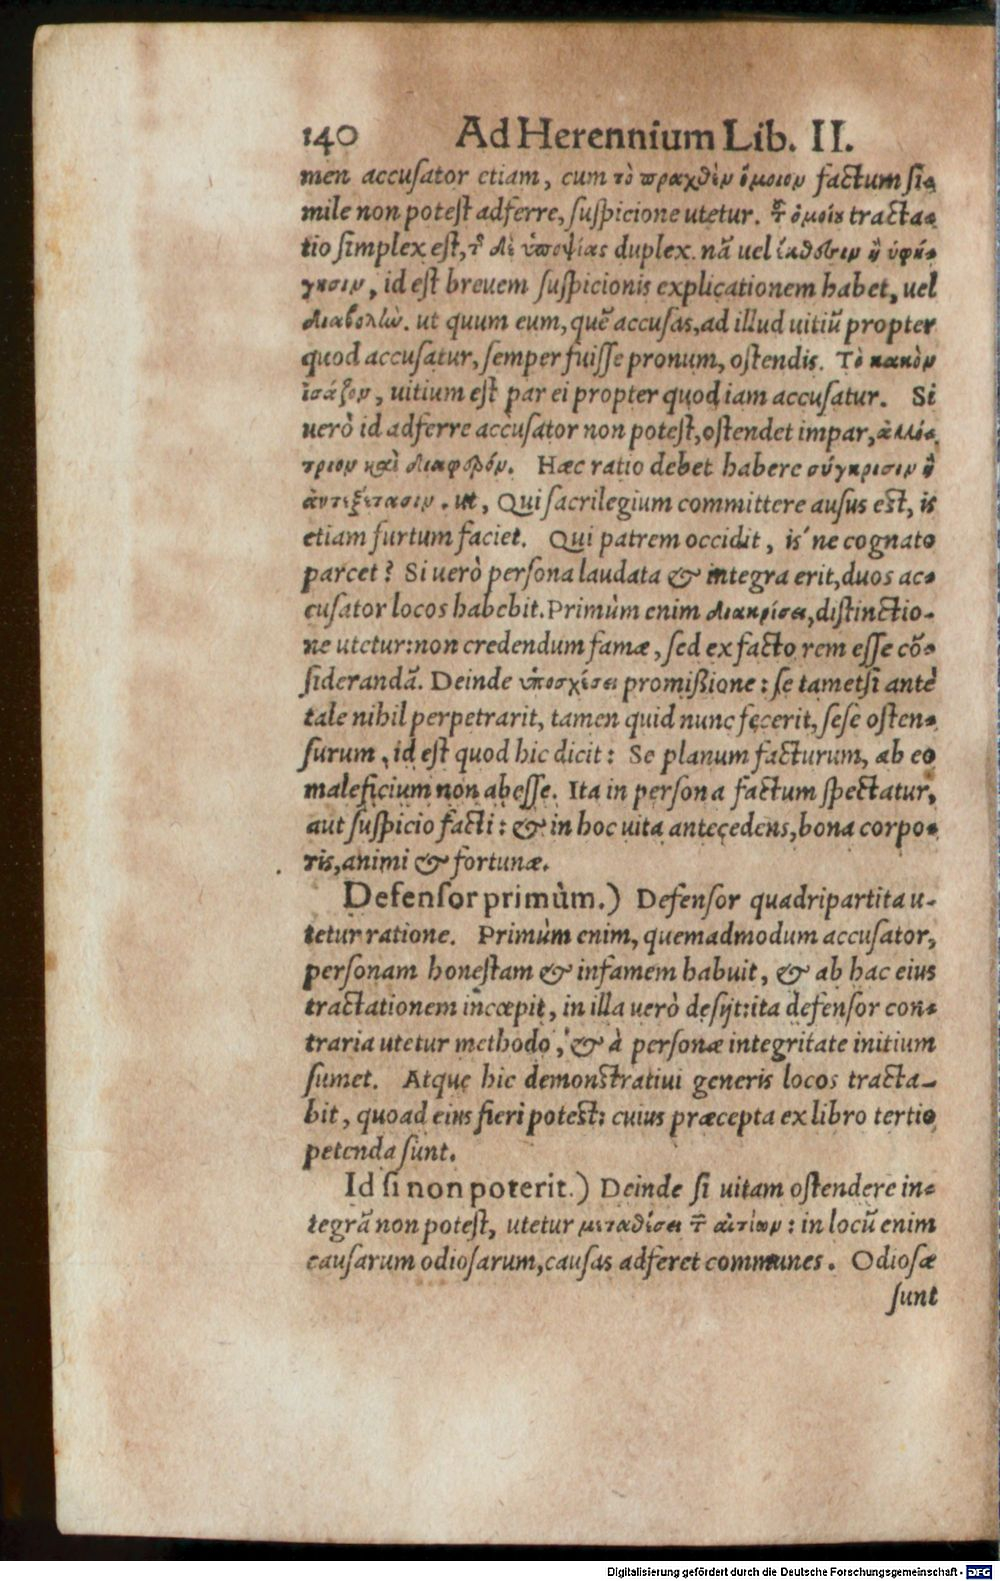 140 Ad Herennium Lib. II.
men accusator etiam, cum τὸ πραχθὲν ὅμοιον factum si-
mile non potest adferre, suspicione utetur. τ͂ ὁμοίου tracta-
tio simplex est, τ͂ δὲ ὑποψίας duplex. nã uel ἔκθεσιν ἢ ὑφή-
γησιν, id est breuem suspicionis explicationem habet, uel
διαβολὼ. ut quum eum, quẽ accusas, ad illud uitiũ propter
quod accusatur, semper fuisse pronum, ostendis. Τὸ κακὸν
ἰσάζον, uitium est par ei propter quod iam accusatur. Si
uerò id adferre accusator non potest, ostendet impar, ἀλλό-
τριον καὶ διαφορόν. Hæc ratio debet habere σύγκρισιν ἢ
ἀντεξέτασιν. ut, Qui sacrilegium committere ausus est, is
etiam furtum faciet. Qui patrem occidit, is' ne cognato
parcet? Si uerò persona laudata & integra erit, duos ac-
cusator locos habebit. Primùm enim διακρίσει, distinctio-
ne utetur: non credendum famæ, sed ex facto rem esse cõ-
siderandã. Deinde ὑποσχέσει promißione: se tametsi antè
tale nihil perpetrarit, tamen quid nunc fecerit, sese osten-
surum, id est quod hic dicit: Se planum facturum, ab eo
maleficium non abesse. Ita in persona factum spectatur,
aut suspicio facti: & in hoc uita antecedens, bona corpo-
ris, animi & fortunæ.
Defensor primùm.) Defensor quadripartita u-
tetur ratione. Primùm enim, quemadmodum accusator,
personam honestam & infamem habuit, & ab hac eius
tractationem incœpit, in illa uerò desijt: ita defensor con-
traria utetur methodo, & à personæ integritate initium
sumet. Atque hic demonstratiui generis locos tracta-
bit, quoad eius fieri potest: cuius præcepta ex libro tertio
petenda sunt.
Id si non poterit.) Deinde si uitam ostendere in-
tegrã non potest, utetur μεταθέσει τ͂ αἰτίων: in locũ enim
causarum odiosarum, causas adferet communes. Odiosæ
sunt
Digitalisierung gefördert durch die Deutsche Forschungsgemeinschaft - DFG